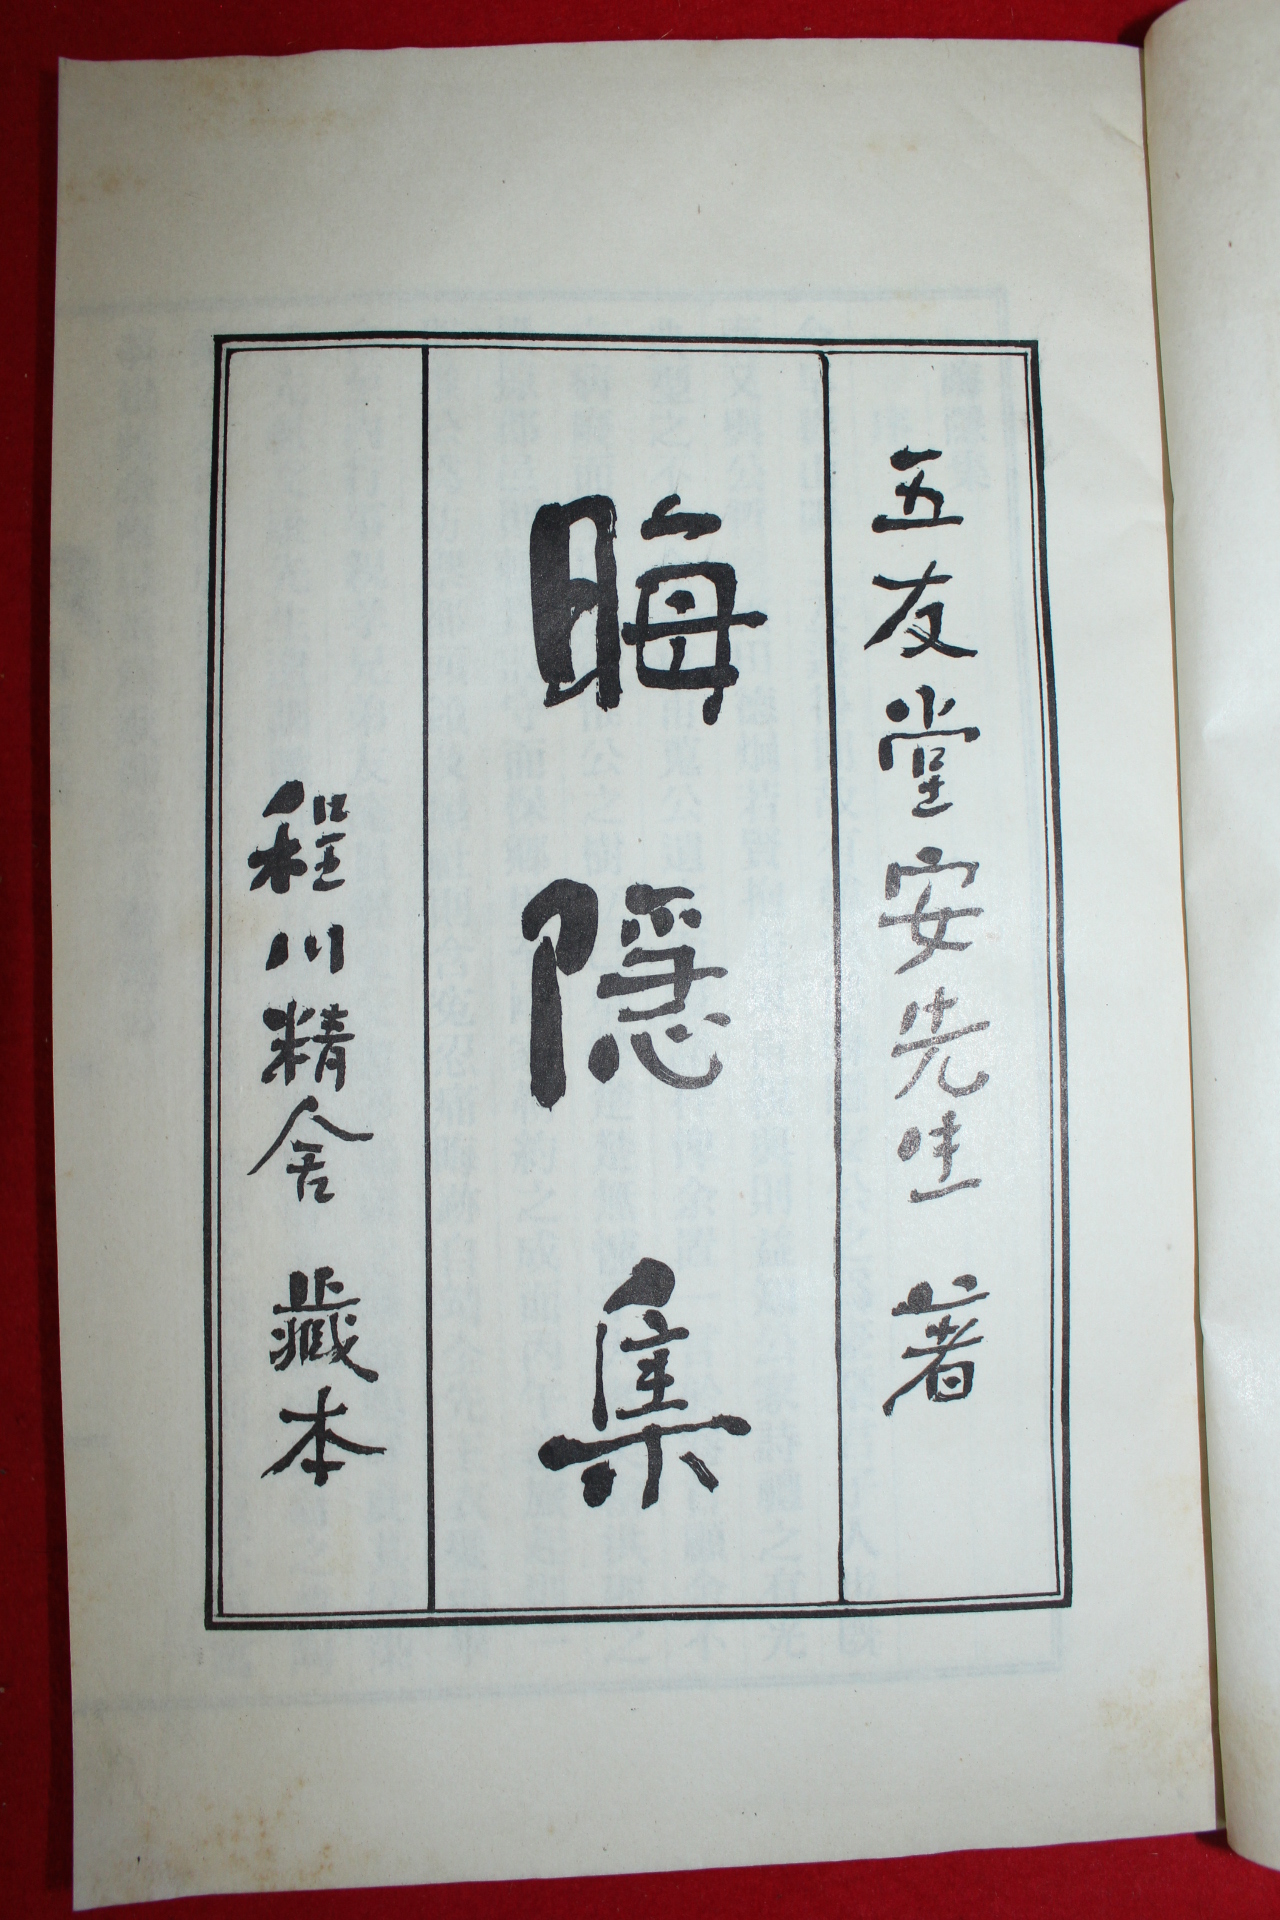 五友堂安先生 著
晦隱集
程川精舍 藏本